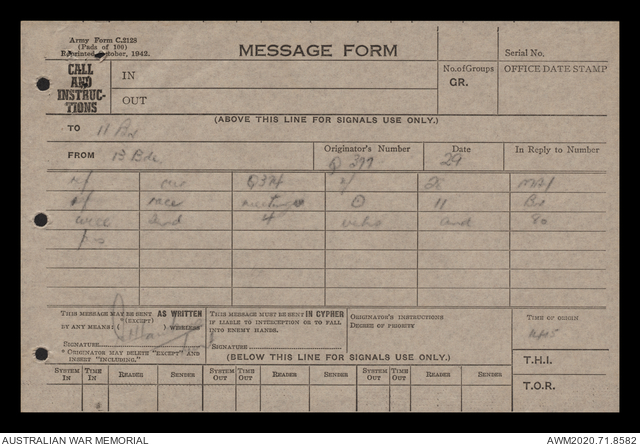 Army Form C.2128
(Pads of 100)
Reprinted October, 1942.
MESSAGE FORM
Serial No.
CALL
AND
INSTRUC-
TIONS
IN
OUT
No. of Groups
GR.
OFFICE DATE STAMP
(ABOVE THIS LINE FOR SIGNALS USE ONLY.)
TO 11 Bn
FROM 13 Bde.
Originator's Number
Q 377
Date
29
In Reply to Number
Q374 28
races 11 Bn
will send 4 and 80
THIS MESSAGE MAY BE SENT AS WRITTEN
(EXCEPT)
BY ANY MEANS: ( ) WIRELESS
SIGNATURE
* ORIGINATOR MAY DELETE "EXCEPT" AND
INSERT "INCLUDING."
THIS MESSAGE MUST BE SENT IN CYPHER
IF LIABLE TO INTERCEPTION OR TO FALL
INTO ENEMY HANDS.
SIGNATURE
ORIGINATOR'S INSTRUCTIONS
DEGREE OF PRIORITY
TIME OF ORIGIN
(BELOW THIS LINE FOR SIGNALS USE ONLY.)
T.H.I.
T.O.R.
SYSTEM IN TIME IN READER SENDER SYSTEM OUT TIME OUT READER SENDER SYSTEM OUT TIME OUT READER SENDER
AUSTRALIAN WAR MEMORIAL
AWM2020.71.8582